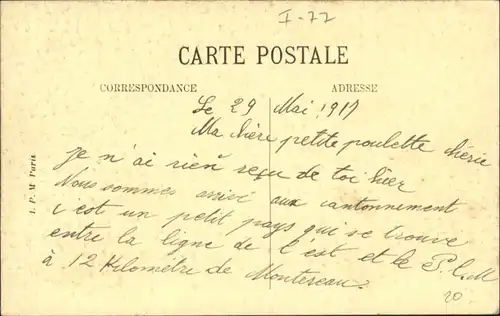 I-77
CARTE POSTALE
CORRESPONDANCE
ADRESSE
Le 29 Mai 1917
Ma chère petite poulette chérie
je n'ai rien reçu de toi hier
Nous sommes arrivé aux cantonnement
c est un petit pays qui se trouve
entre la ligne de l'est et le P.L.M
à 12 Kilomètre de Montereau.
20
I. P. M Paris